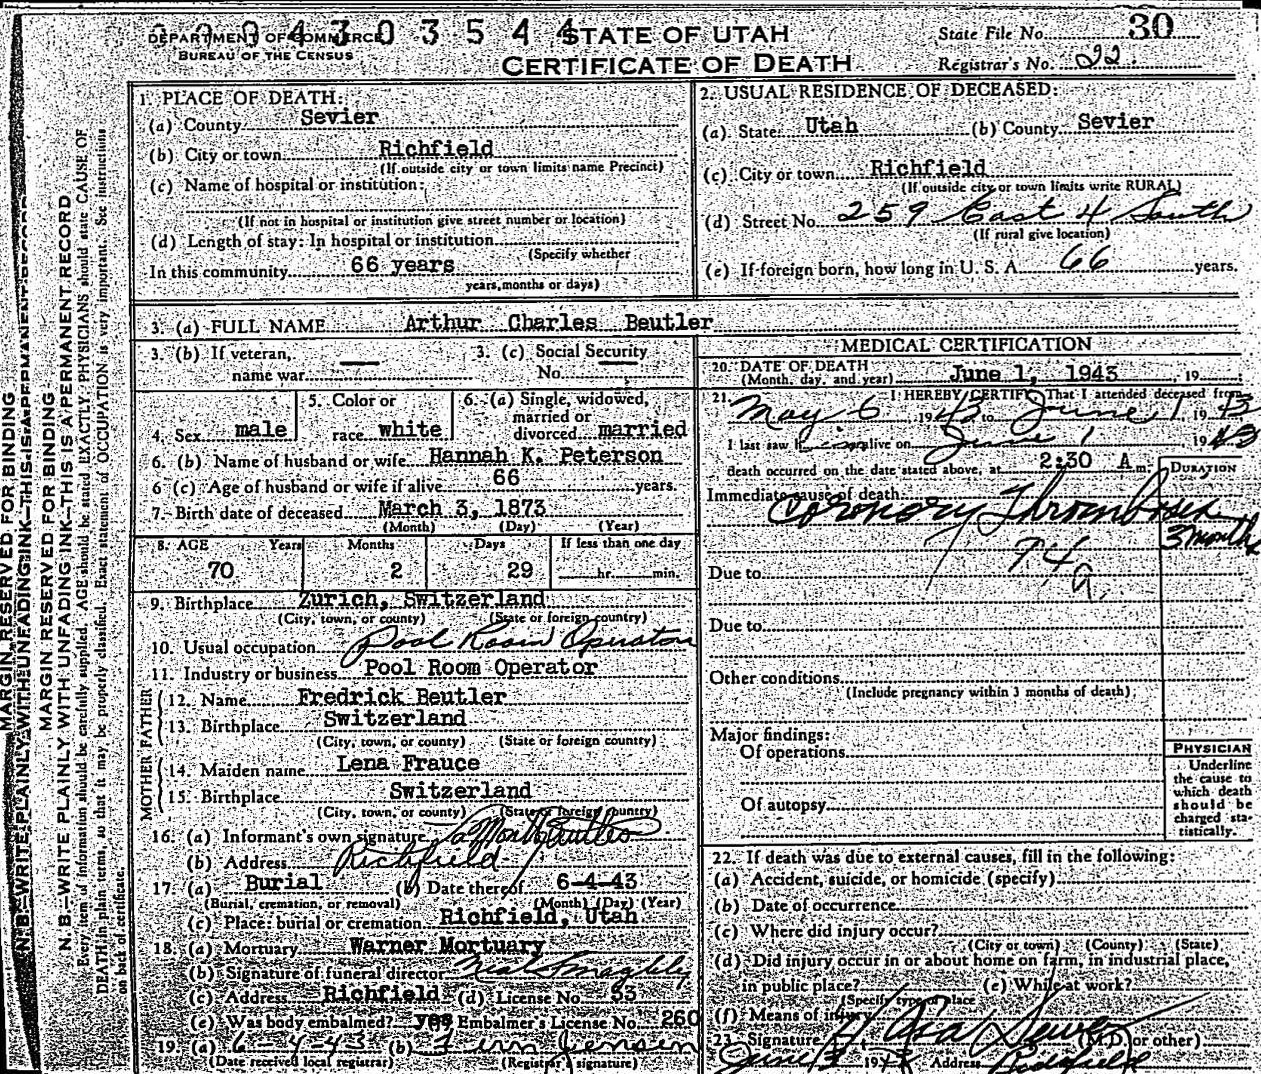 0 0 4 3 0 3 5 4 4
DEPARTMENT OF COMMERCE
BUREAU OF THE CENSUS
STATE OF UTAH
CERTIFICATE OF DEATH
State File No. 30
Registrar's No. 22
MARGIN RESERVED FOR BINDING
N. B.—WRITE PLAINLY WITH UNFADING INK—THIS IS A PERMANENT RECORD
MARGIN RESERVED FOR BINDING
N. B.—WRITE PLAINLY WITH UNFADING INK—THIS IS A PERMANENT RECORD
Every item of information should be carefully supplied. AGE should be stated EXACTLY. PHYSICIANS should state CAUSE OF
DEATH in plain terms, so that it may be properly classified. Exact statement of OCCUPATION is very important. See instructions
on back of certificate.
1. PLACE OF DEATH:
(a) County Sevier
(b) City or town Richfield
(If outside city or town limits name Precinct)
(c) Name of hospital or institution:
(If not in hospital or institution give street number or location)
(d) Length of stay: In hospital or institution
(Specify whether
In this community 66 years
years, months or days)
2. USUAL RESIDENCE OF DECEASED:
(a) State Utah (b) County Sevier
(c) City or town Richfield
(If outside city or town limits write RURAL)
(d) Street No. 259 East 4 South
(If rural give location)
(e) If foreign born, how long in U. S. A. 66 years.
3. (a) FULL NAME Arthur Charles Beutler
3. (b) If veteran,
name war
3. (c) Social Security
No.
4. Sex male
5. Color or
race white
6. (a) Single, widowed,
married or
divorced married
6. (b) Name of husband or wife Hannah K. Peterson
6 (c) Age of husband or wife if alive 66 years.
7. Birth date of deceased March 3, 1873
(Month) (Day) (Year)
8. AGE Years Months Days If less than one day
70 2 29 hr. min.
9. Birthplace Zurich, Switzerland
(City, town, or county) (State or foreign country)
10. Usual occupation Pool Room Operator
11. Industry or business Pool Room Operator
FATHER
12. Name Fredrick Beutler
13. Birthplace Switzerland
(City, town, or county) (State or foreign country)
MOTHER
14. Maiden name Lena Frauce
15. Birthplace Switzerland
(City, town, or county) (State or foreign country)
16. (a) Informant's own signature Beutler
(b) Address Richfield
17. (a) Burial (b) Date thereof 6-4-43
(Burial, cremation, or removal) (Month) (Day) (Year)
(c) Place: burial or cremation Richfield, Utah
18. (a) Mortuary Warner Mortuary
(b) Signature of funeral director Neal
(c) Address Richfield (d) License No. 53
(e) Was body embalmed? yes Embalmer's License No. 260
19. (a) 6-4-43 (b) Fern Jensen
(Date received local registrar) (Registrar's signature)
MEDICAL CERTIFICATION
20. DATE OF DEATH
(Month, day, and year) June 1, 1943, 19
21. I HEREBY CERTIFY, That I attended deceased from
May 6 1943 to June 1 1943
I last saw him alive on June 1 1943
death occurred on the date stated above, at 2:30 A m.
DURATION
Immediate cause of death
Coronary Thrombosis
3 months
94
a
Due to
Due to
Other conditions
(Include pregnancy within 3 months of death)
Major findings:
Of operations
Of autopsy
PHYSICIAN
Underline
the cause to
which death
should be
charged sta-
tistically.
22. If death was due to external causes, fill in the following:
(a) Accident, suicide, or homicide (specify)
(b) Date of occurrence
(c) Where did injury occur?
(City or town) (County) (State)
(d) Did injury occur in or about home on farm, in industrial place,
in public place? (e) While at work?
(Specify type of place
(f) Means of injury
23. Signature (M.D. or other)
June 3 1943 Address Richfield